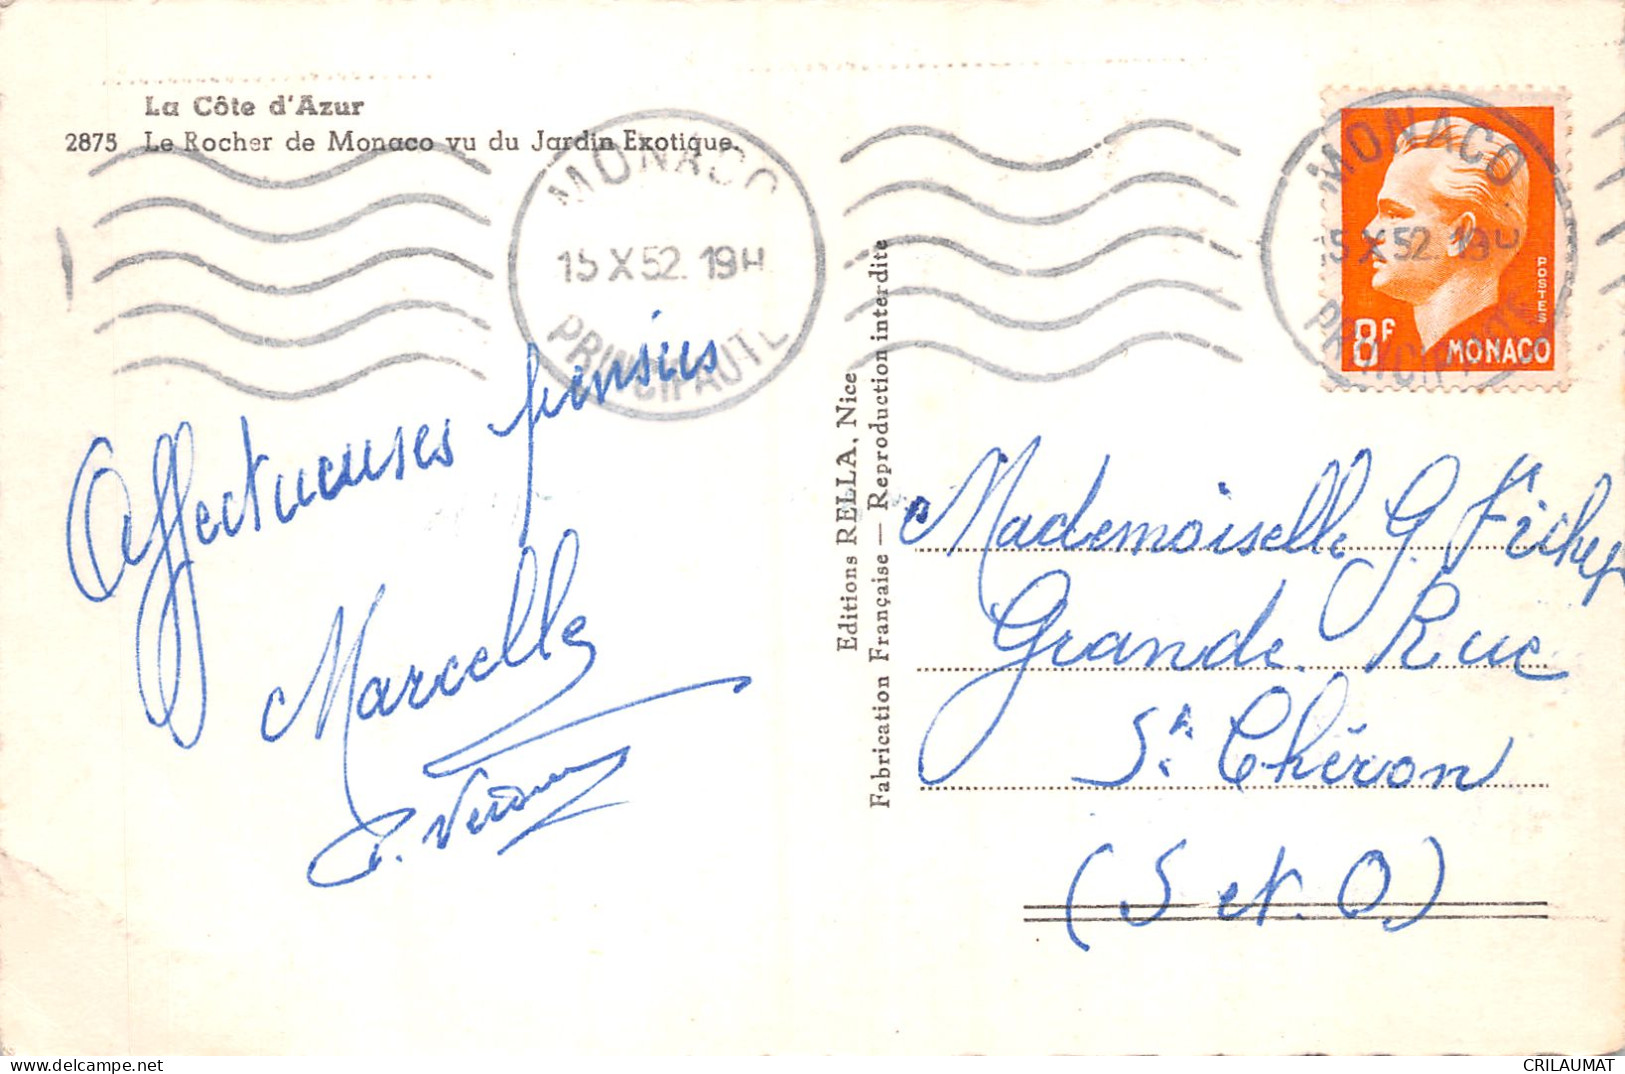 La Côte d'Azur
2875 Le Rocher de Monaco vu du Jardin Exotique.
MONACO
15 X 52. 19H
PRINCIPAUTE
MONACO
15 X 52. 19H
PRINCIPAUTE
POSTES
8F MONACO
Affectueuses pensées
Marcelle
Editions RELLA, Nice
Fabrication Française — Reproduction interdite
Mademoiselle G.
Grande Rue
St Chéron
(S et. O)
delcampe.net
CRILAUMAT